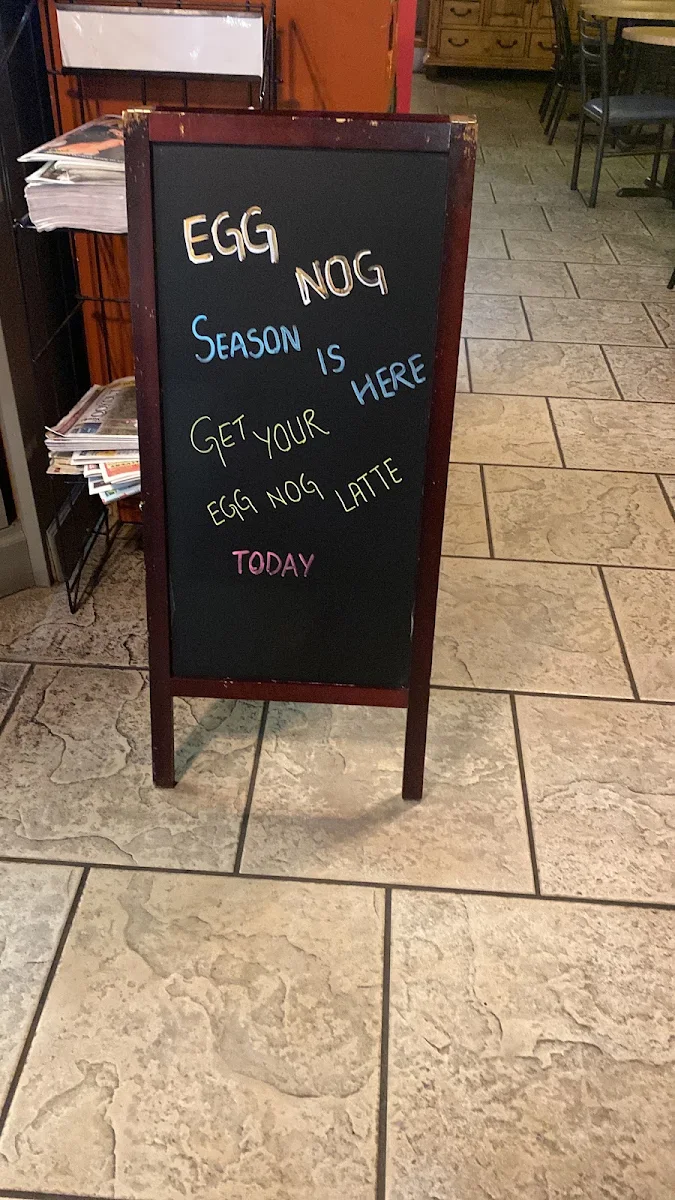 EGG
NOG
SEASON IS
HERE
GET YOUR
EGG NOG LATTE
TODAY